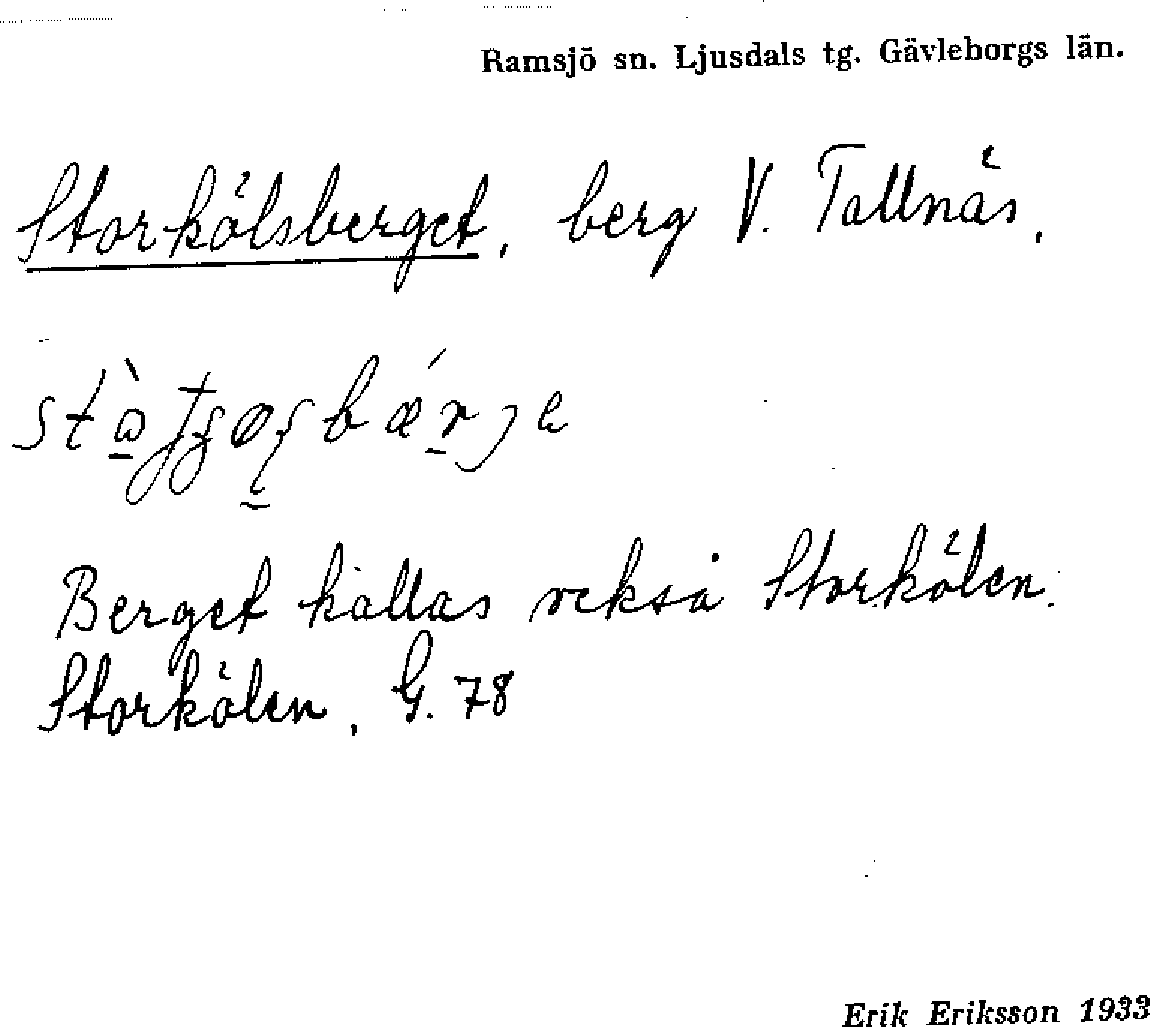 Ramsjö sn. Ljusdals tg. Gävleborgs län.
Storkölsberget, berg V. Tallnäs,
Berget kallas också Storkölen.
Storkölen, G. 78
Erik Eriksson 1933